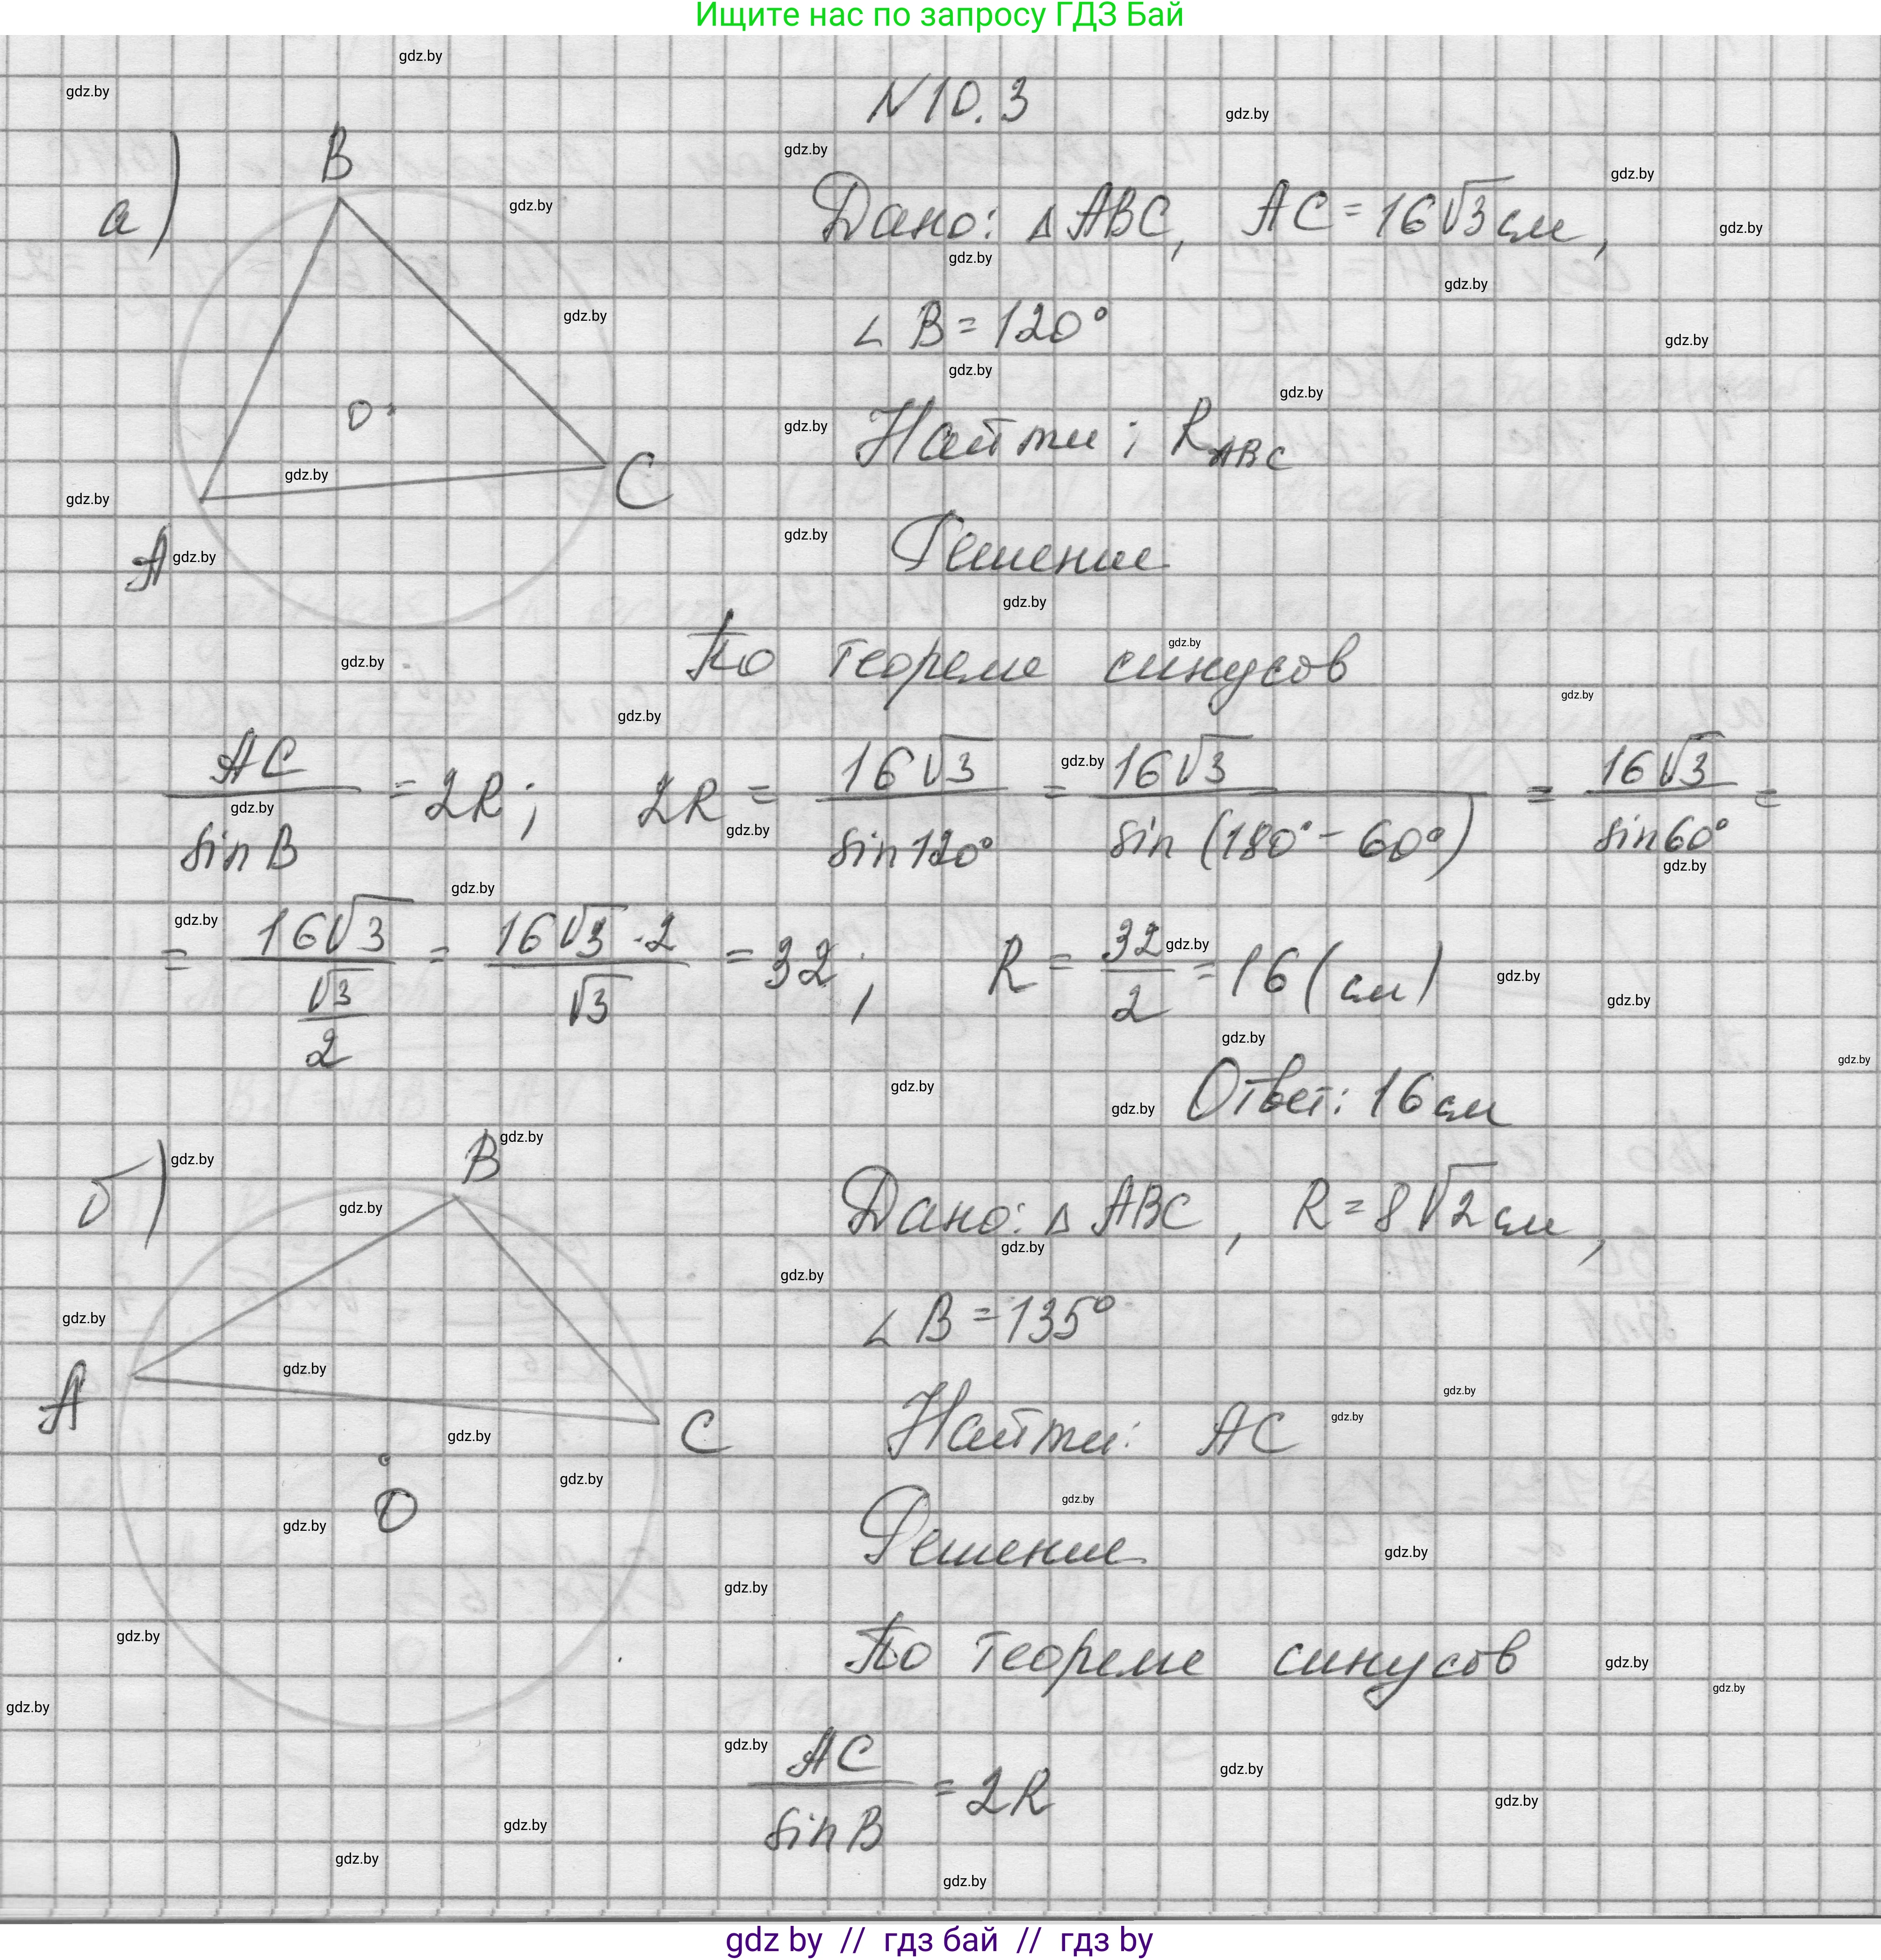 Ищите нас по запросу ГДЗ Бай
N 10.3
а)
B
O
C
A
Дано: △ABC, AC = 16√3 см,
∠B = 120°
Найти: R_ABC
Решение
По теореме синусов
AC / sin B = 2R; 2R = 16√3 / sin 120° = 16√3 / sin (180° - 60°) = 16√3 / sin 60° =
= 16√3 / (√3 / 2) = 16√3 · 2 / √3 = 32; R = 32 / 2 = 16 (см)
Ответ: 16 см
б)
B
A
C
O
Дано: △ABC, R = 8√2 см,
∠B = 135°
Найти: AC
Решение
По теореме синусов
AC / sin B = 2R
gdz.by
gdz by // гдз бай // гдз by